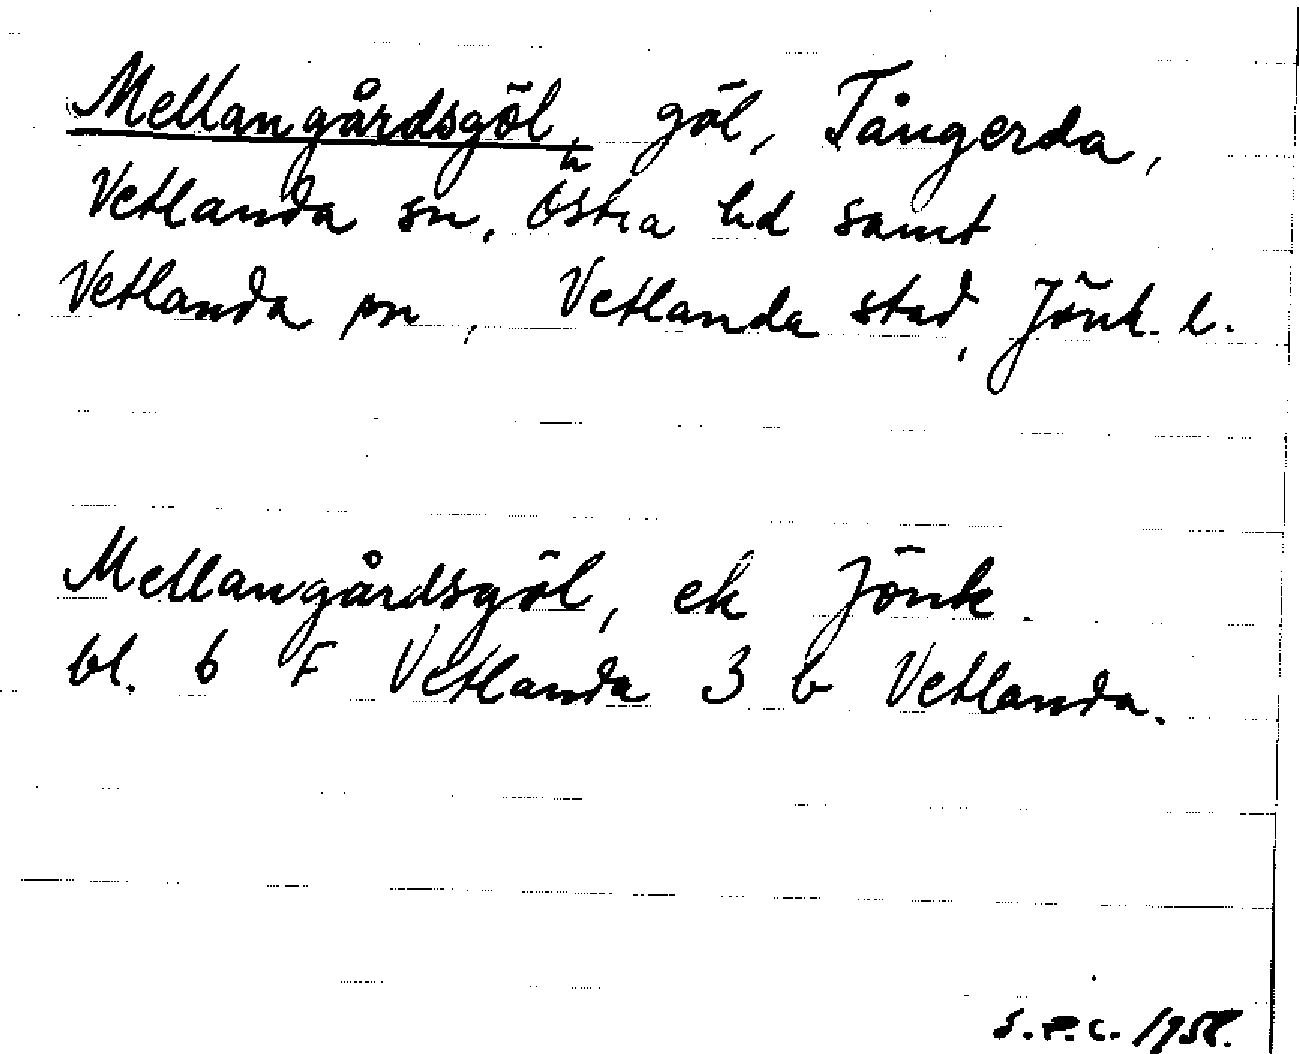 Mellangårdsgöl, göl, Tångerda,
Vetlanda sn, Östra hd samt
Vetlanda sn, Vetlanda stad, Jönk. l.
Mellangårdsgöl, ek Jönk.
bl. 6 F Vetlanda 3 b Vetlanda.
S.P.C. 1958.